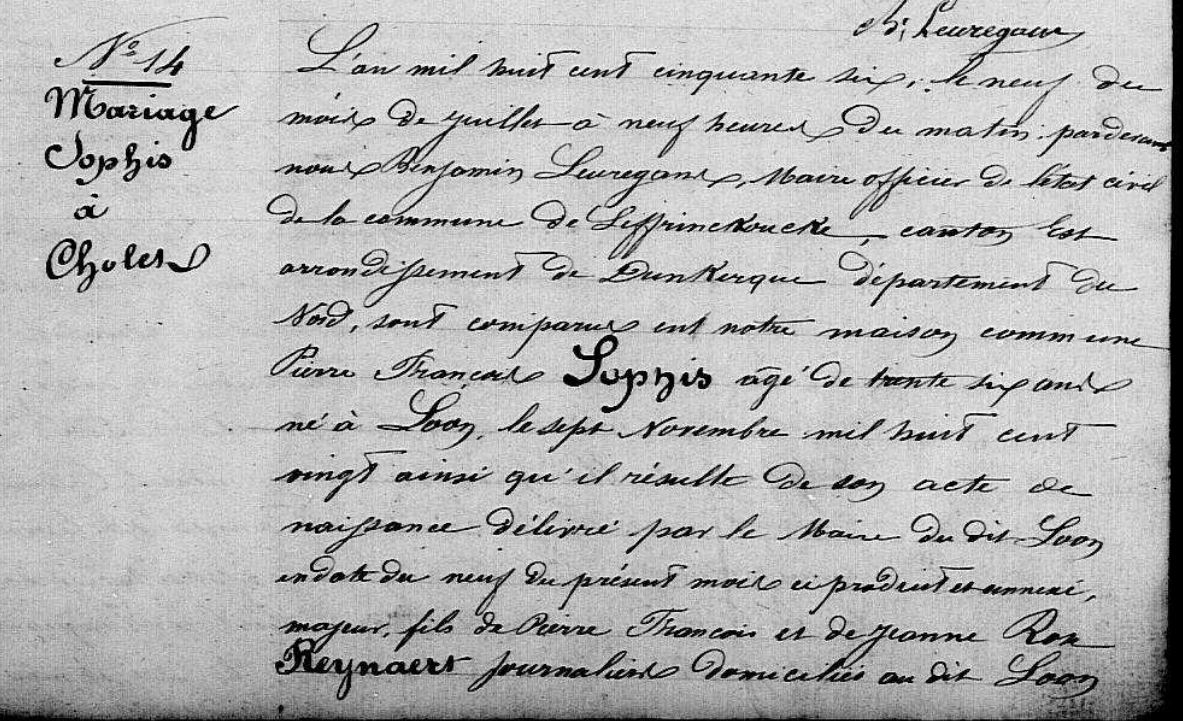 Bj. Leuregans
N° 14
Mariage
Sophis
à
Cholet
L'an mil huit cent cinquante six, le neuf du
mois de Juillet à neuf heures du matin, pardevant
nous Benjamin Leuregans, Maire officier de l'état civil
de la commune de Leffrinckoucke, canton Est
arrondissement de Dunkerque département du
Nord, sont comparus ent notre maison commune
Pierre François Sophis agé de trente six ans
né à Loon, le sept Novembre mil huit cent
vingt ainsi qu'il résulte de son acte de
naissance délivré par le Maire du dit Loon
en date du neuf du présent mois ci produit et annexé,
majeur, fils de Pierre François et de Jeanne
Reynaert journaliers domiciliés au dit Loon